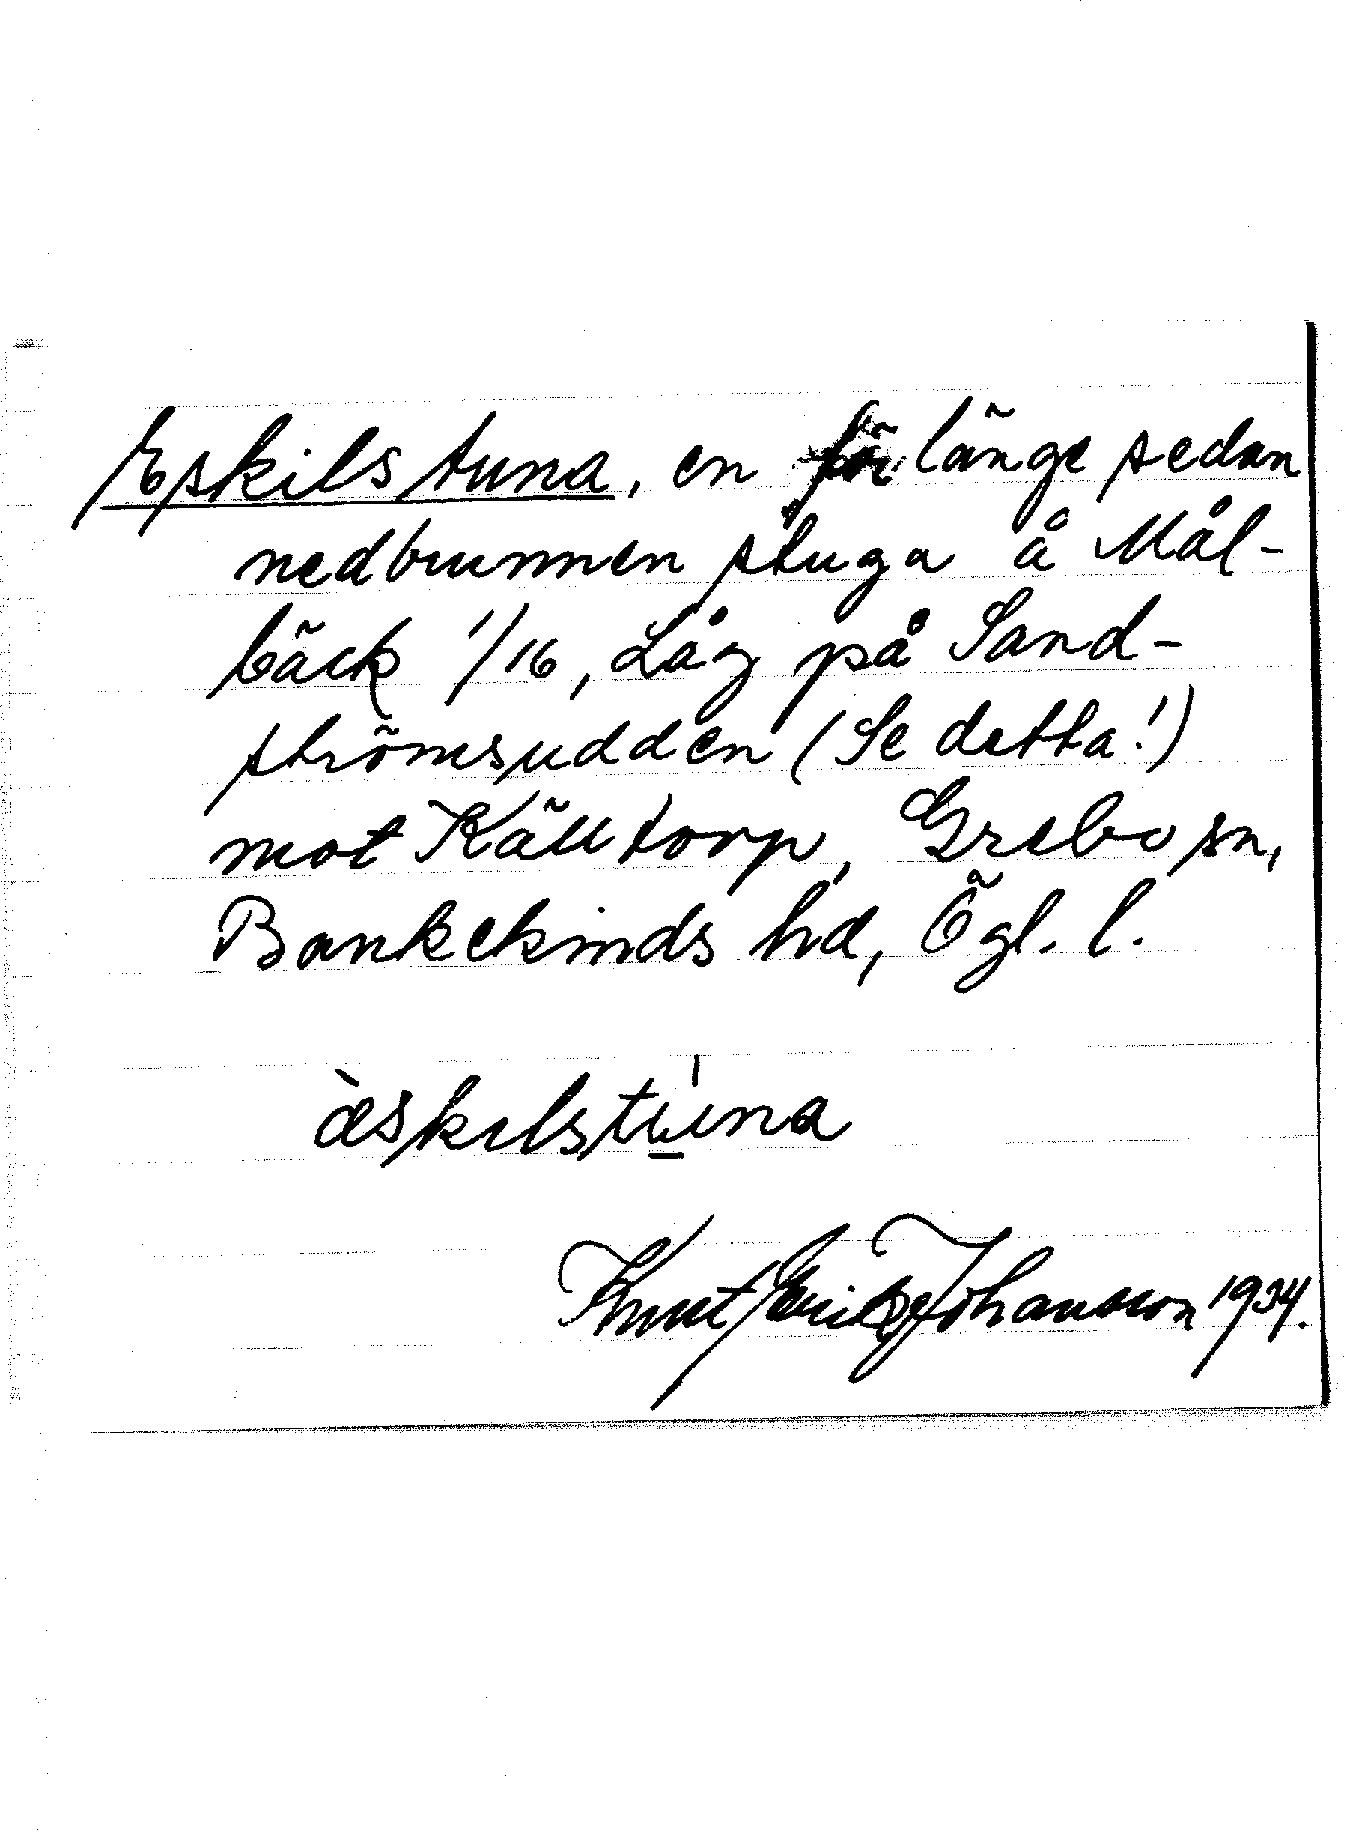 Eskilstuna, en för länge sedan
nedbrunnen stuga å Mål-
bäck 1/16, Låg på Sand-
strömsudden (Se detta!)
mot Källtorp, Grebo sn,
Bankekinds hd, Ögl. l.
æ̀skɩlstu̲̍na
Knut Erik Johansson 1934.